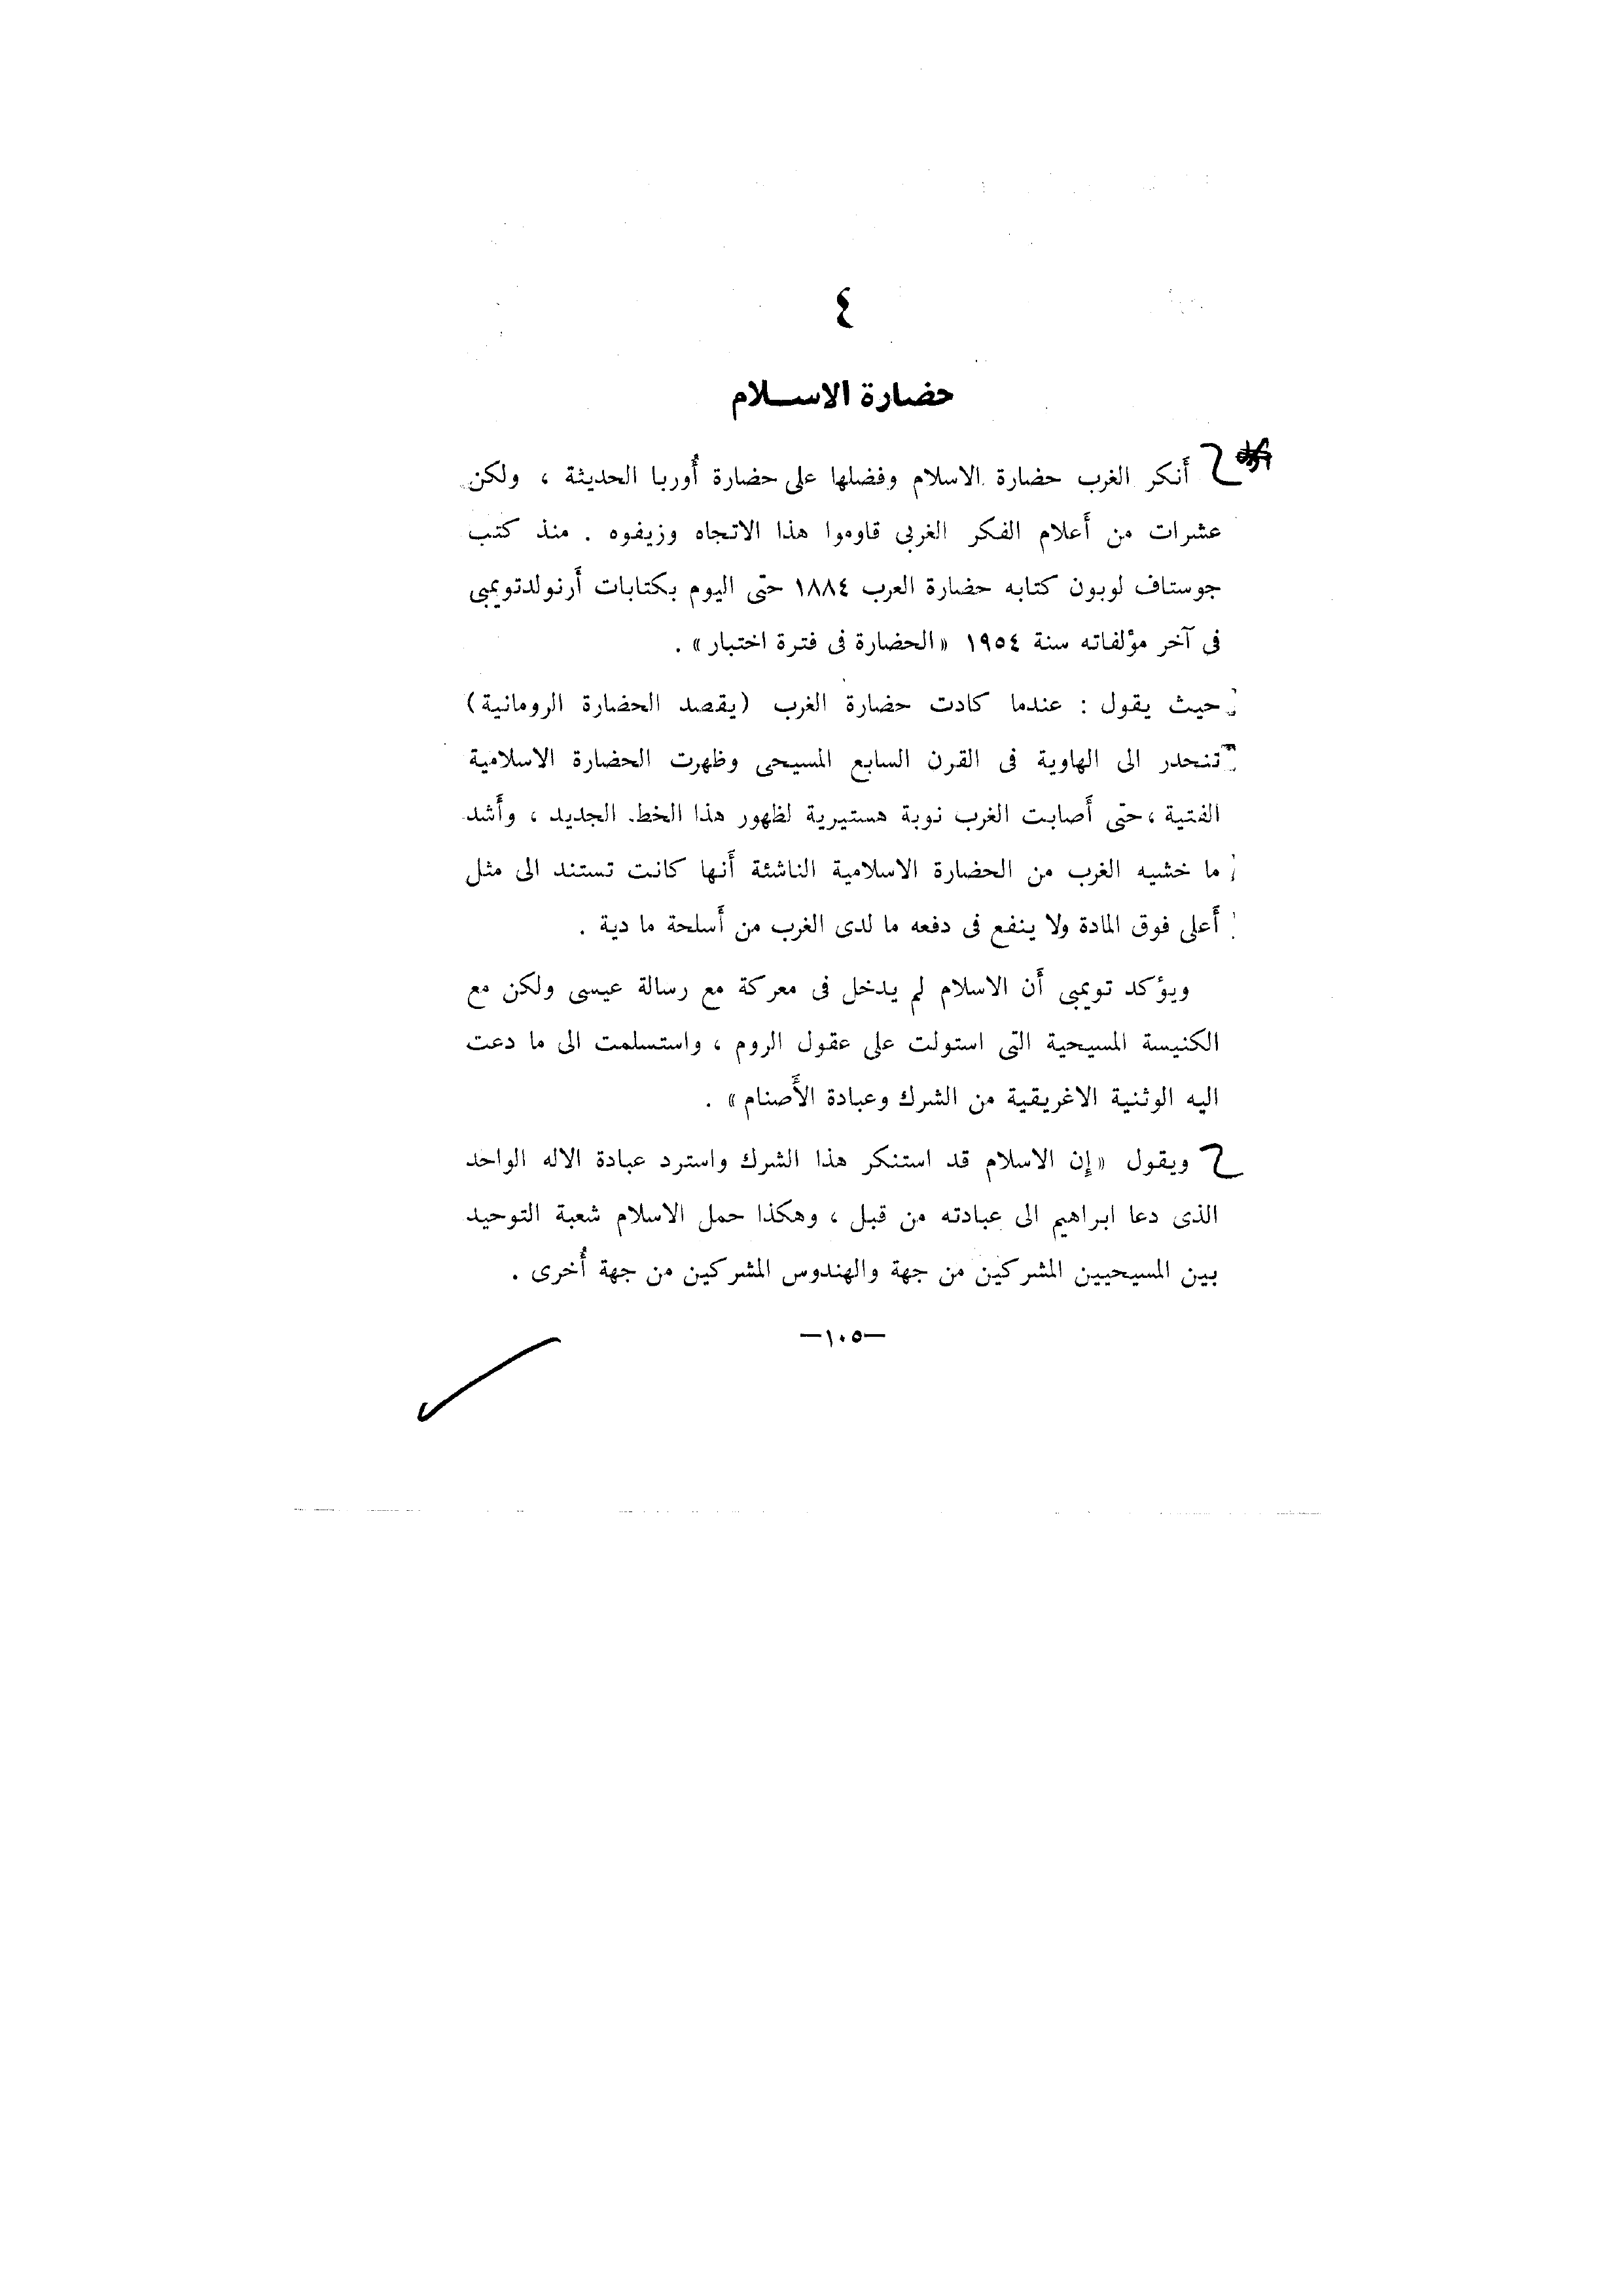 ٤
حضارة الاســلام
أنكر الغرب حضارة الاسلام وفضلها على حضارة أُوربا الحديثة ، ولكن
عشرات من أعلام الفكر الغربى قاوموا هذا الاتجاه وزيفوه . منذ كتب
جوستاف لوبون كتابه حضارة العرب ١٨٨٤ حتى اليوم بكتابات أرنولدتويمبى
فى آخر مؤلفاته سنة ١٩٥٤ «الحضارة فى فترة اختبار» .
حيث يقول : عندما كادت حضارة الغرب (يقصد الحضارة الرومانية)
تنحدر الى الهاوية فى القرن السابع المسيحى وظهرت الحضارة الاسلامية
الفتية ، حتى أصابت الغرب نوبة هستيرية لظهور هذا الخط. الجديد ، وأشد
ما خشيه الغرب من الحضارة الاسلامية الناشئة أنها كانت تستند الى مثل
أعلى فوق المادة ولا ينفع فى دفعه ما لدى الغرب من أسلحة ما دية .
ويؤكد تويمبى أن الاسلام لم يدخل فى معركة مع رسالة عيسى ولكن مع
الكنيسة المسيحية التى استولت على عقول الروم ، واستسلمت الى ما دعت
اليه الوثنية الاغريقية من الشرك وعبادة الأصنام» .
ويقول «إن الاسلام قد استنكر هذا الشرك واسترد عبادة الاله الواحد
الذى دعا ابراهيم الى عبادته من قبل ، وهكذا حمل الاسلام شعبة التوحيد
بين المسيحيين المشركين من جهة والهندوس المشركين من جهة أُخرى .
—١٠٥—